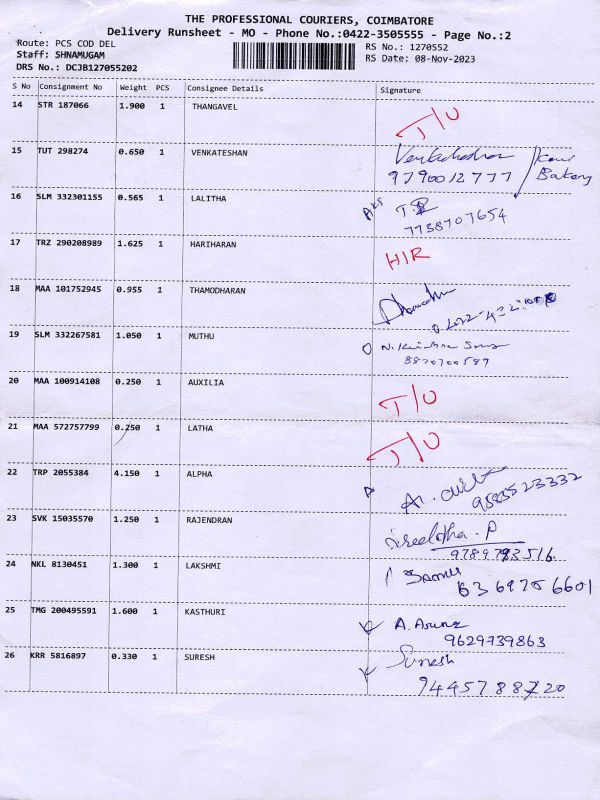 THE PROFESSIONAL COURIERS, COIMBATORE
Delivery Runsheet - MO - Phone No.:0422-3505555 - Page No.:2
Route: PCS COD DEL RS No.: 1270552
Staff: SHNAMUGAM RS Date: 08-Nov-2023
DRS No.: DCJB127055202
S No Consignment No Weight PCS Consignee Details Signature
14 STR 187066 1.900 1 THANGAVEL T/U
15 TUT 298274 0.650 1 VENKATESHAN
9790012777 Bakery
16 SLM 332301155 0.565 1 LALITHA
7738707654
17 TRZ 290208989 1.625 1 HARIHARAN HIR
18 MAA 101752945 0.955 1 THAMODHARAN
19 SLM 332267581 1.050 1 MUTHU
20 MAA 100914108 0.250 1 AUXILIA T/U
21 MAA 572757799 0.250 1 LATHA T/U
22 TRP 2055384 4.150 1 ALPHA
23 SVK 15035570 1.250 1 RAJENDRAN
24 NKL 8130451 1.300 1 LAKSHMI
25 TMG 200495591 1.600 1 KASTHURI A. Aruna
9629739863
26 KRR 5816897 0.330 1 SURESH Suresh
9445788720